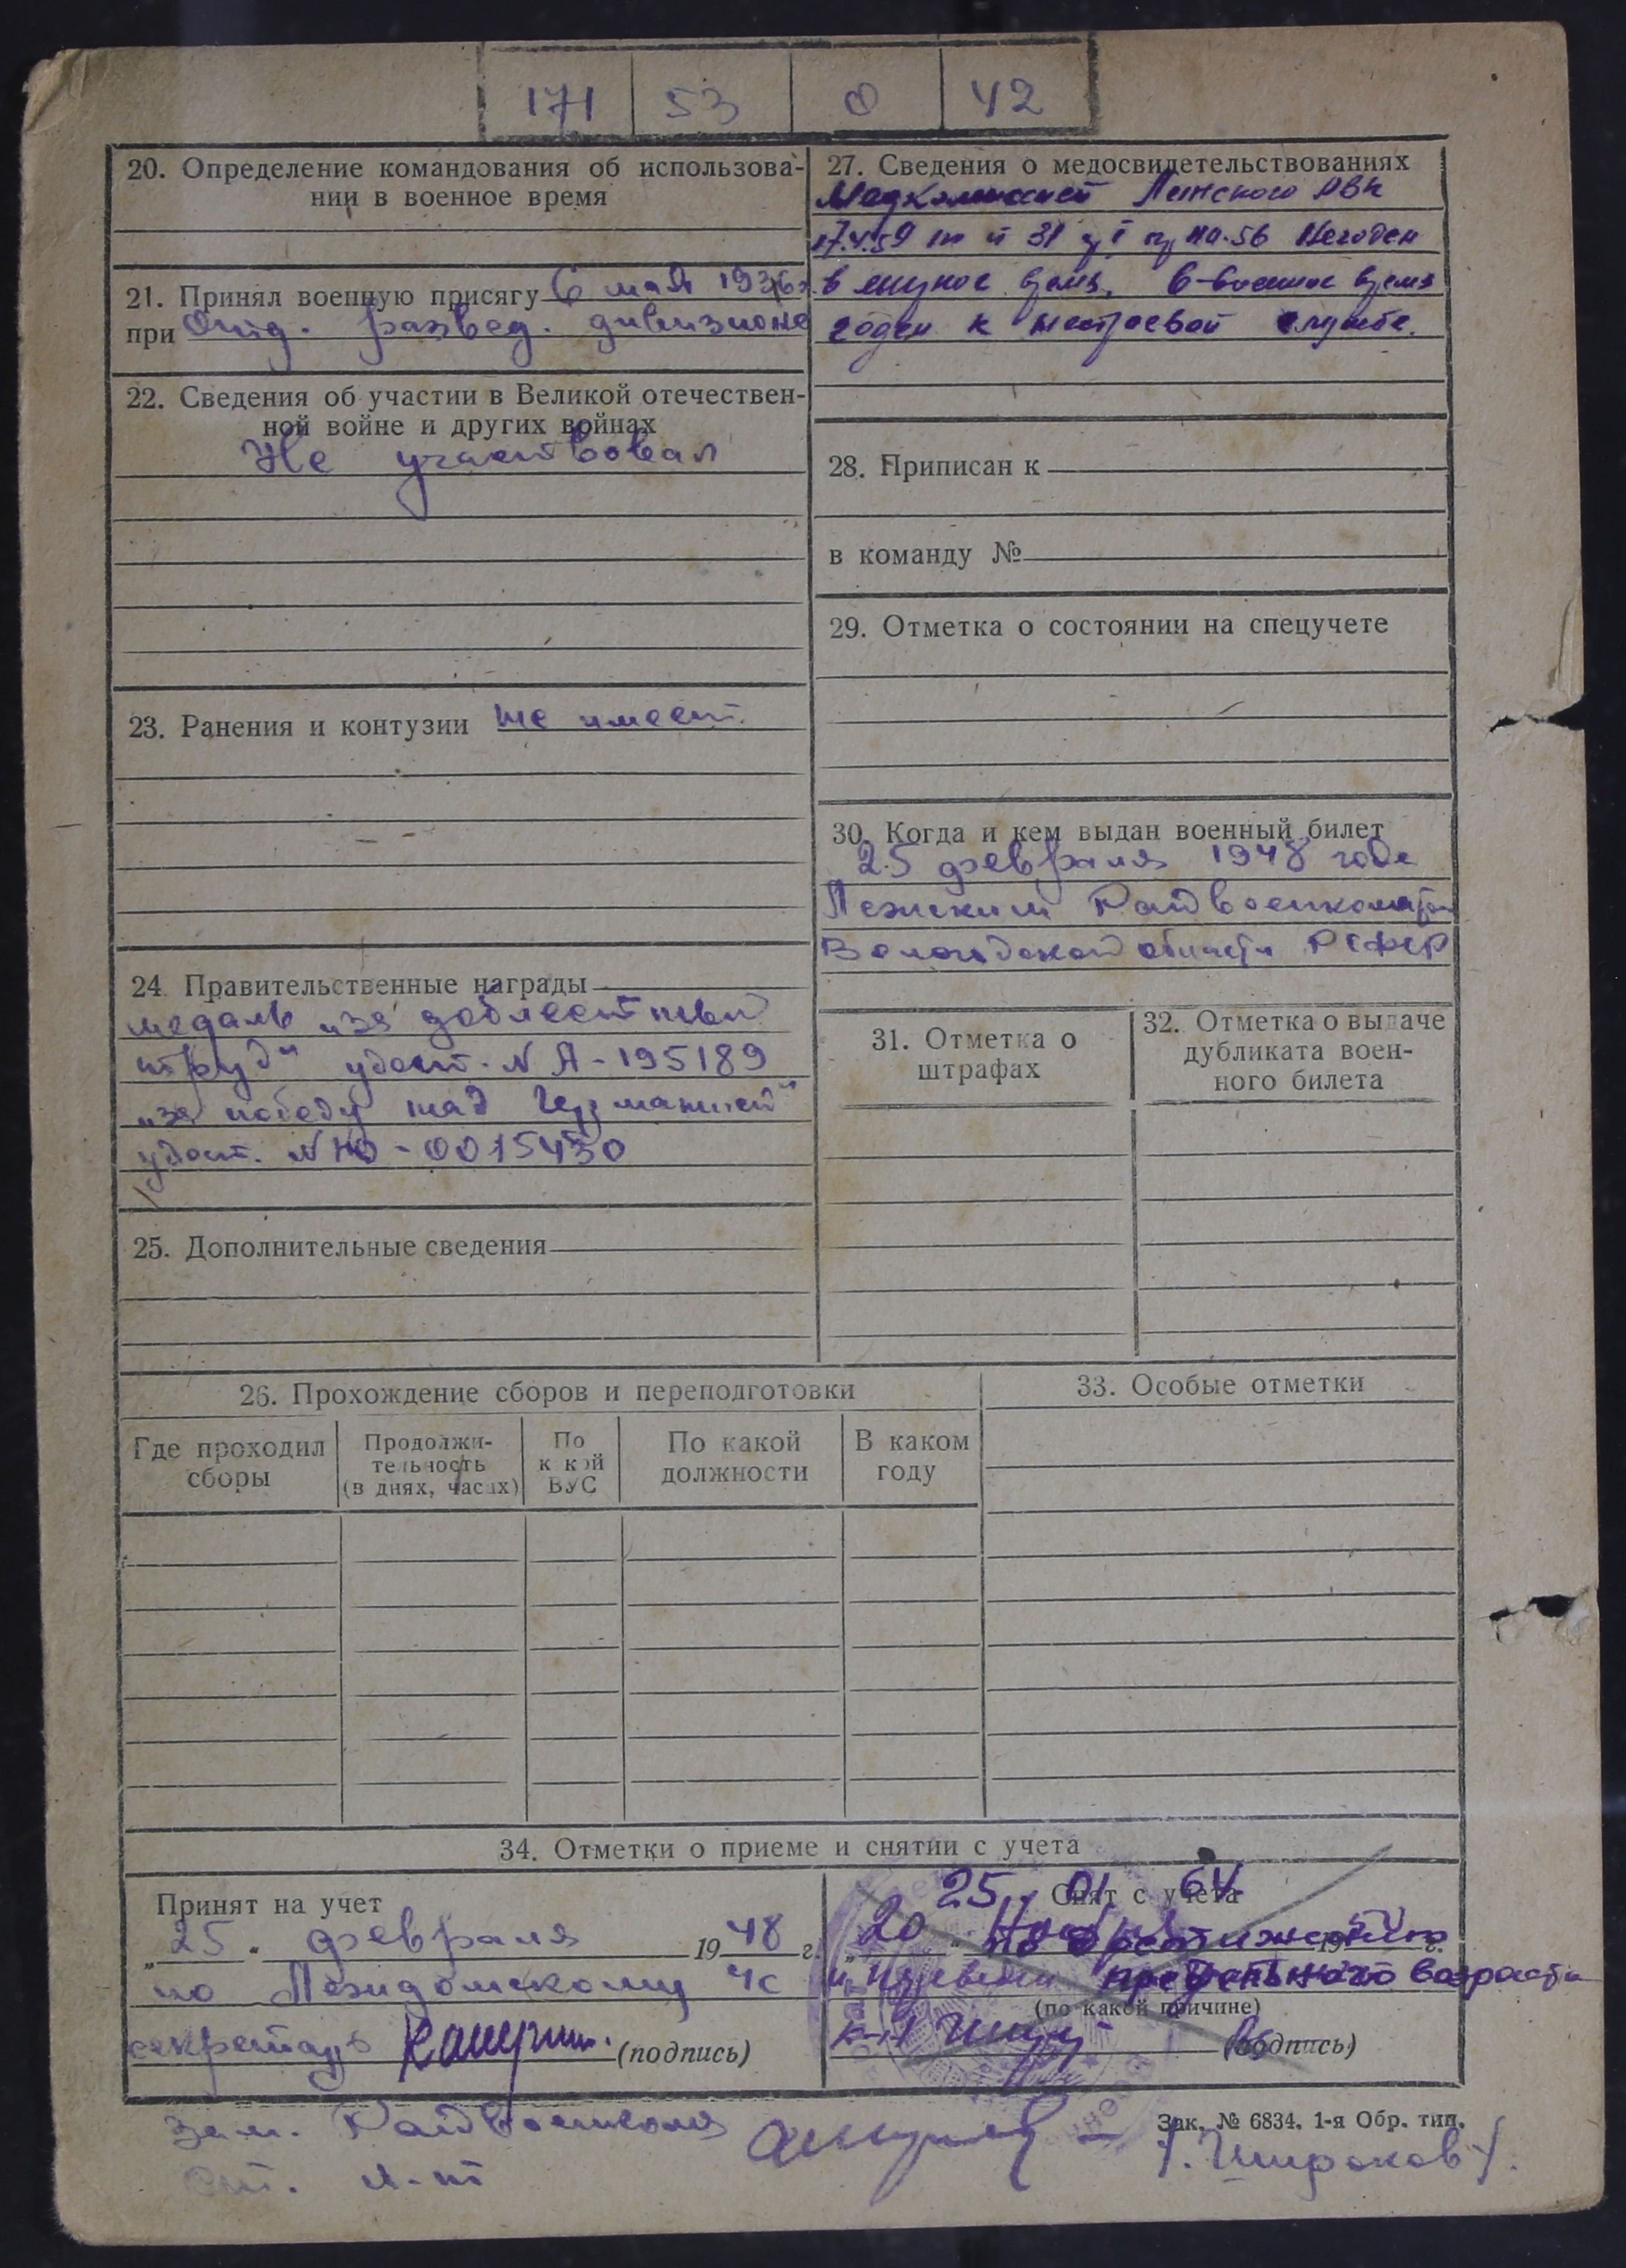 171 53 0 42
20. Определение командования об использова-
нии в военное время
21. Принял военную присягу 6 мая 1936 г.
при Отд. развед. дивизионе
22. Сведения об участии в Великой отечествен-
ной войне и других войнах
Не участвовал
23. Ранения и контузии не имеет.
24. Правительственные награды
медаль „за доблестный
труд“ удост. № А-195189
„за победу над Германией“
удост. № Ю-0015430
25. Дополнительные сведения
27. Сведения о медосвидетельствованиях
Медкомиссией Лежского РВК
Негоден
в мирное время, в военное время
годен к нестроевой службе.
28. Приписан к
в команду №
29. Отметка о состоянии на спецучете
30. Когда и кем выдан военный билет
25 февраля 1948 года
Лежским Райвоенкоматом
Вологодской области РСФСР
31. Отметка о
штрафах
32. Отметка о выдаче
дубликата воен-
ного билета
26. Прохождение сборов и переподготовки
Где проходил
сборы
Продолжи-
тельность
(в днях, часах)
По
какой
ВУС
По какой
должности
В каком
году
33. Особые отметки
34. Отметки о приеме и снятии с учета
Принят на учет
„25“ февраля 1948 г.
по Лежидомскому ЧС
секретарь (подпись)
25. 01 64
Снят с учета
„20“ 19 г.
по достижению
предельного возраста
(по какой причине)
к-н (подпись)
Зак. № 6834. 1-я Обр. тип.
Зам. Райвоенкома
Ст. л-т /Широков/.